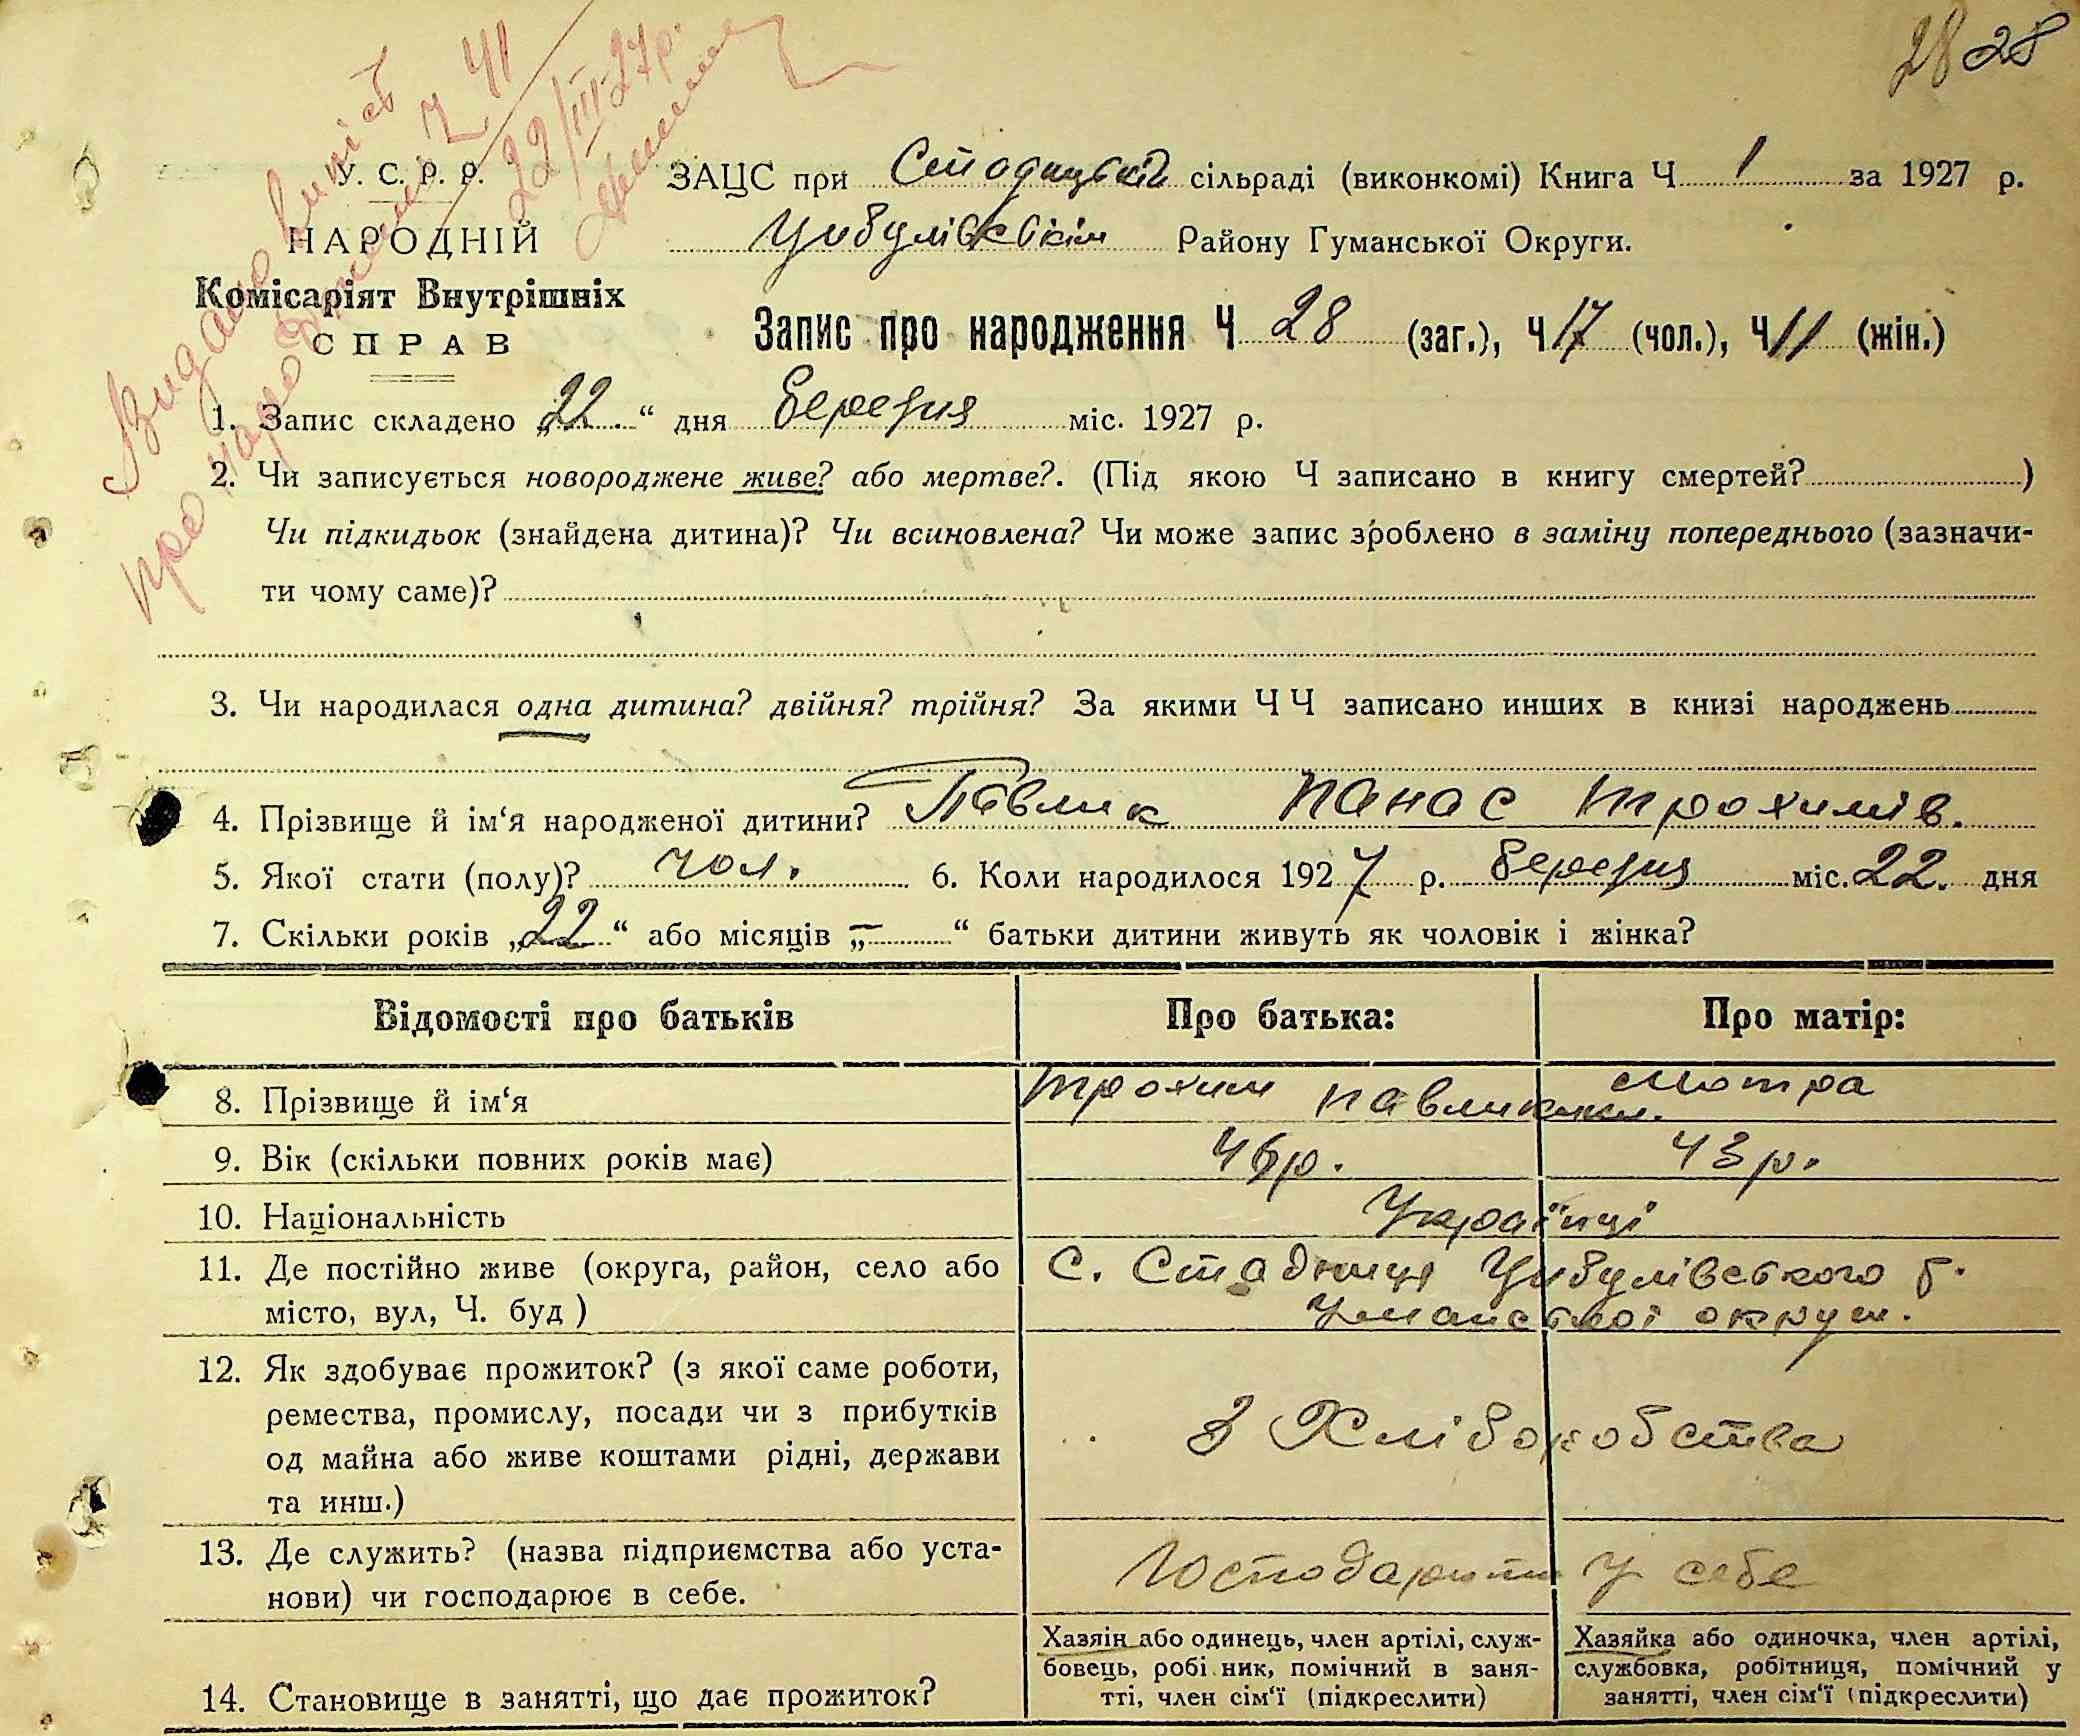 28 28
Видано випис
про народження Ч 41
22/III 27 р.
У. С. Р. Р.
НАРОДНІЙ
Комісаріят Внутрішніх
СПРАВ
ЗАЦС при Стодицькій сільраді (виконкомі) Книга Ч 1 за 1927 р.
Цибулівськім Району Гуманської Округи.
Запис про народження Ч 28 (заг.), Ч 17 (чол.), Ч 11 (жін.)
1. Запис складено „22“ дня Березня міс. 1927 р.
2. Чи записується новороджене живе? або мертве?. (Під якою Ч записано в книгу смертей? )
Чи підкидьок (знайдена дитина)? Чи всиновлена? Чи може запис зроблено в заміну попереднього (зазначи-
ти чому саме)?
3. Чи народилася одна дитина? двійня? трійня? За якими Ч Ч записано инших в книзі народжень
4. Прізвище й ім‘я народженої дитини? Павлик Панас Трохимів.
5. Якої стати (полу)? чол. 6. Коли народилося 1927 р. Березня міс. 22. дня
7. Скільки років „22“ або місяців „–“ батьки дитини живуть як чоловік і жінка?
Відомості про батьків Про батька: Про матір:
8. Прізвище й ім‘я Трохим Павлик Мотра
9. Вік (скільки повних років має) 46 р. 43 р.
10. Національність Українці
11. Де постійно живе (округа, район, село або С. Стадниця Цибулівського р.
місто, вул, Ч. буд ) Уманської округи.
12. Як здобуває прожиток? (з якої саме роботи,
ремества, промислу, посади чи з прибутків З Хліборобства
од майна або живе коштами рідні, держави
та инш.)
13. Де служить? (назва підприємства або уста-
нови) чи господарює в себе. Господарюють у себе
14. Становище в занятті, що дає прожиток?
Хазяін або одинець, член артілі, служ-
бовець, робі ник, помічний в заня-
тті, член сім‘ї (підкреслити)
Хазяйка або одиночка, член артілі,
службовка, робітниця, помічний у
занятті, член сім‘ї (підкреслити)